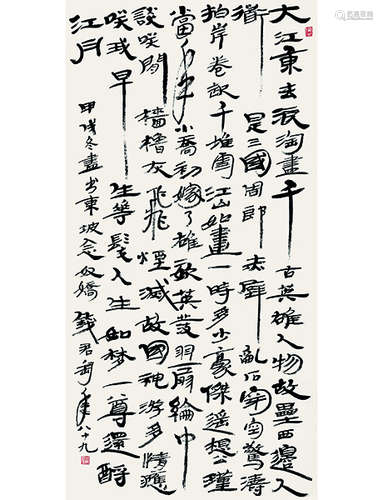 大江東去浪淘盡千古英雄人物故壘西邊人
道是三國周郎赤壁亂石穿空驚濤
拍岸卷起千堆雪江山如畫一時多少豪傑遙想公瑾
當年小喬初嫁了雄姿英發羽扇綸巾
談咲間檣櫓灰飛煙滅故國神游多情應
咲我早生華髮人生如梦一尊還酹
江月
甲戌冬盡书東坡念奴嬌錢君匋年八十九